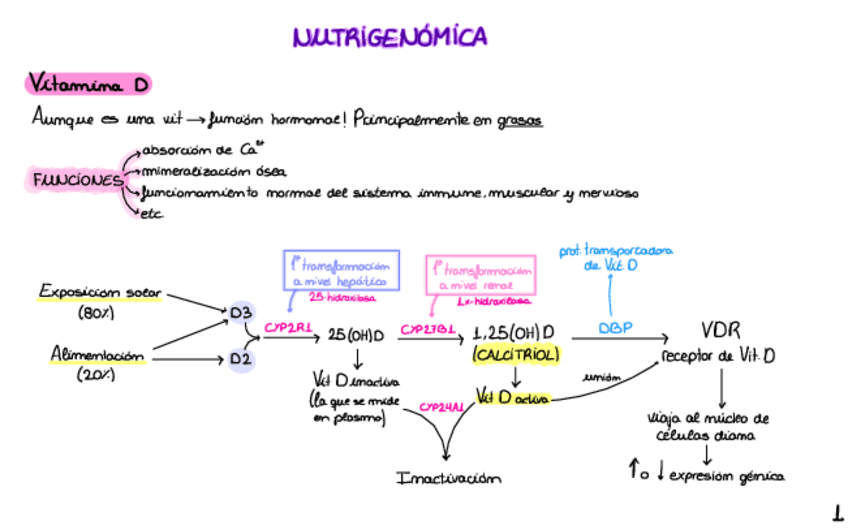 NUTRIGENÓMICA
Vitamina D
Aunque es una vit → función hormonal! Principalmente en grasas
FUNCIONES
absorción de Ca²⁺
mineralización ósea
funcionamiento normal del sistema immune, muscular y nervioso
etc.
Exposición solar
(80%)
Alimentación
(20%)
D3
D2
CYP2R1
1ª transformación
a nivel hepático
25-hidroxilasa
25(OH)D
Vit D inactiva
(la que se mide
en plasma)
CYP27B1
1ª transformación
a nivel renal
1α-hidroxilasa
1,25(OH)D
(CALCITRIOL)
Vit D activa
CYP24A1
Inactivación
prot. transportadora
de Vit. D
DBP
unión
VDR
receptor de Vit. D
viaja al núcleo de
células diana
↑ o ↓ expresión génica
1